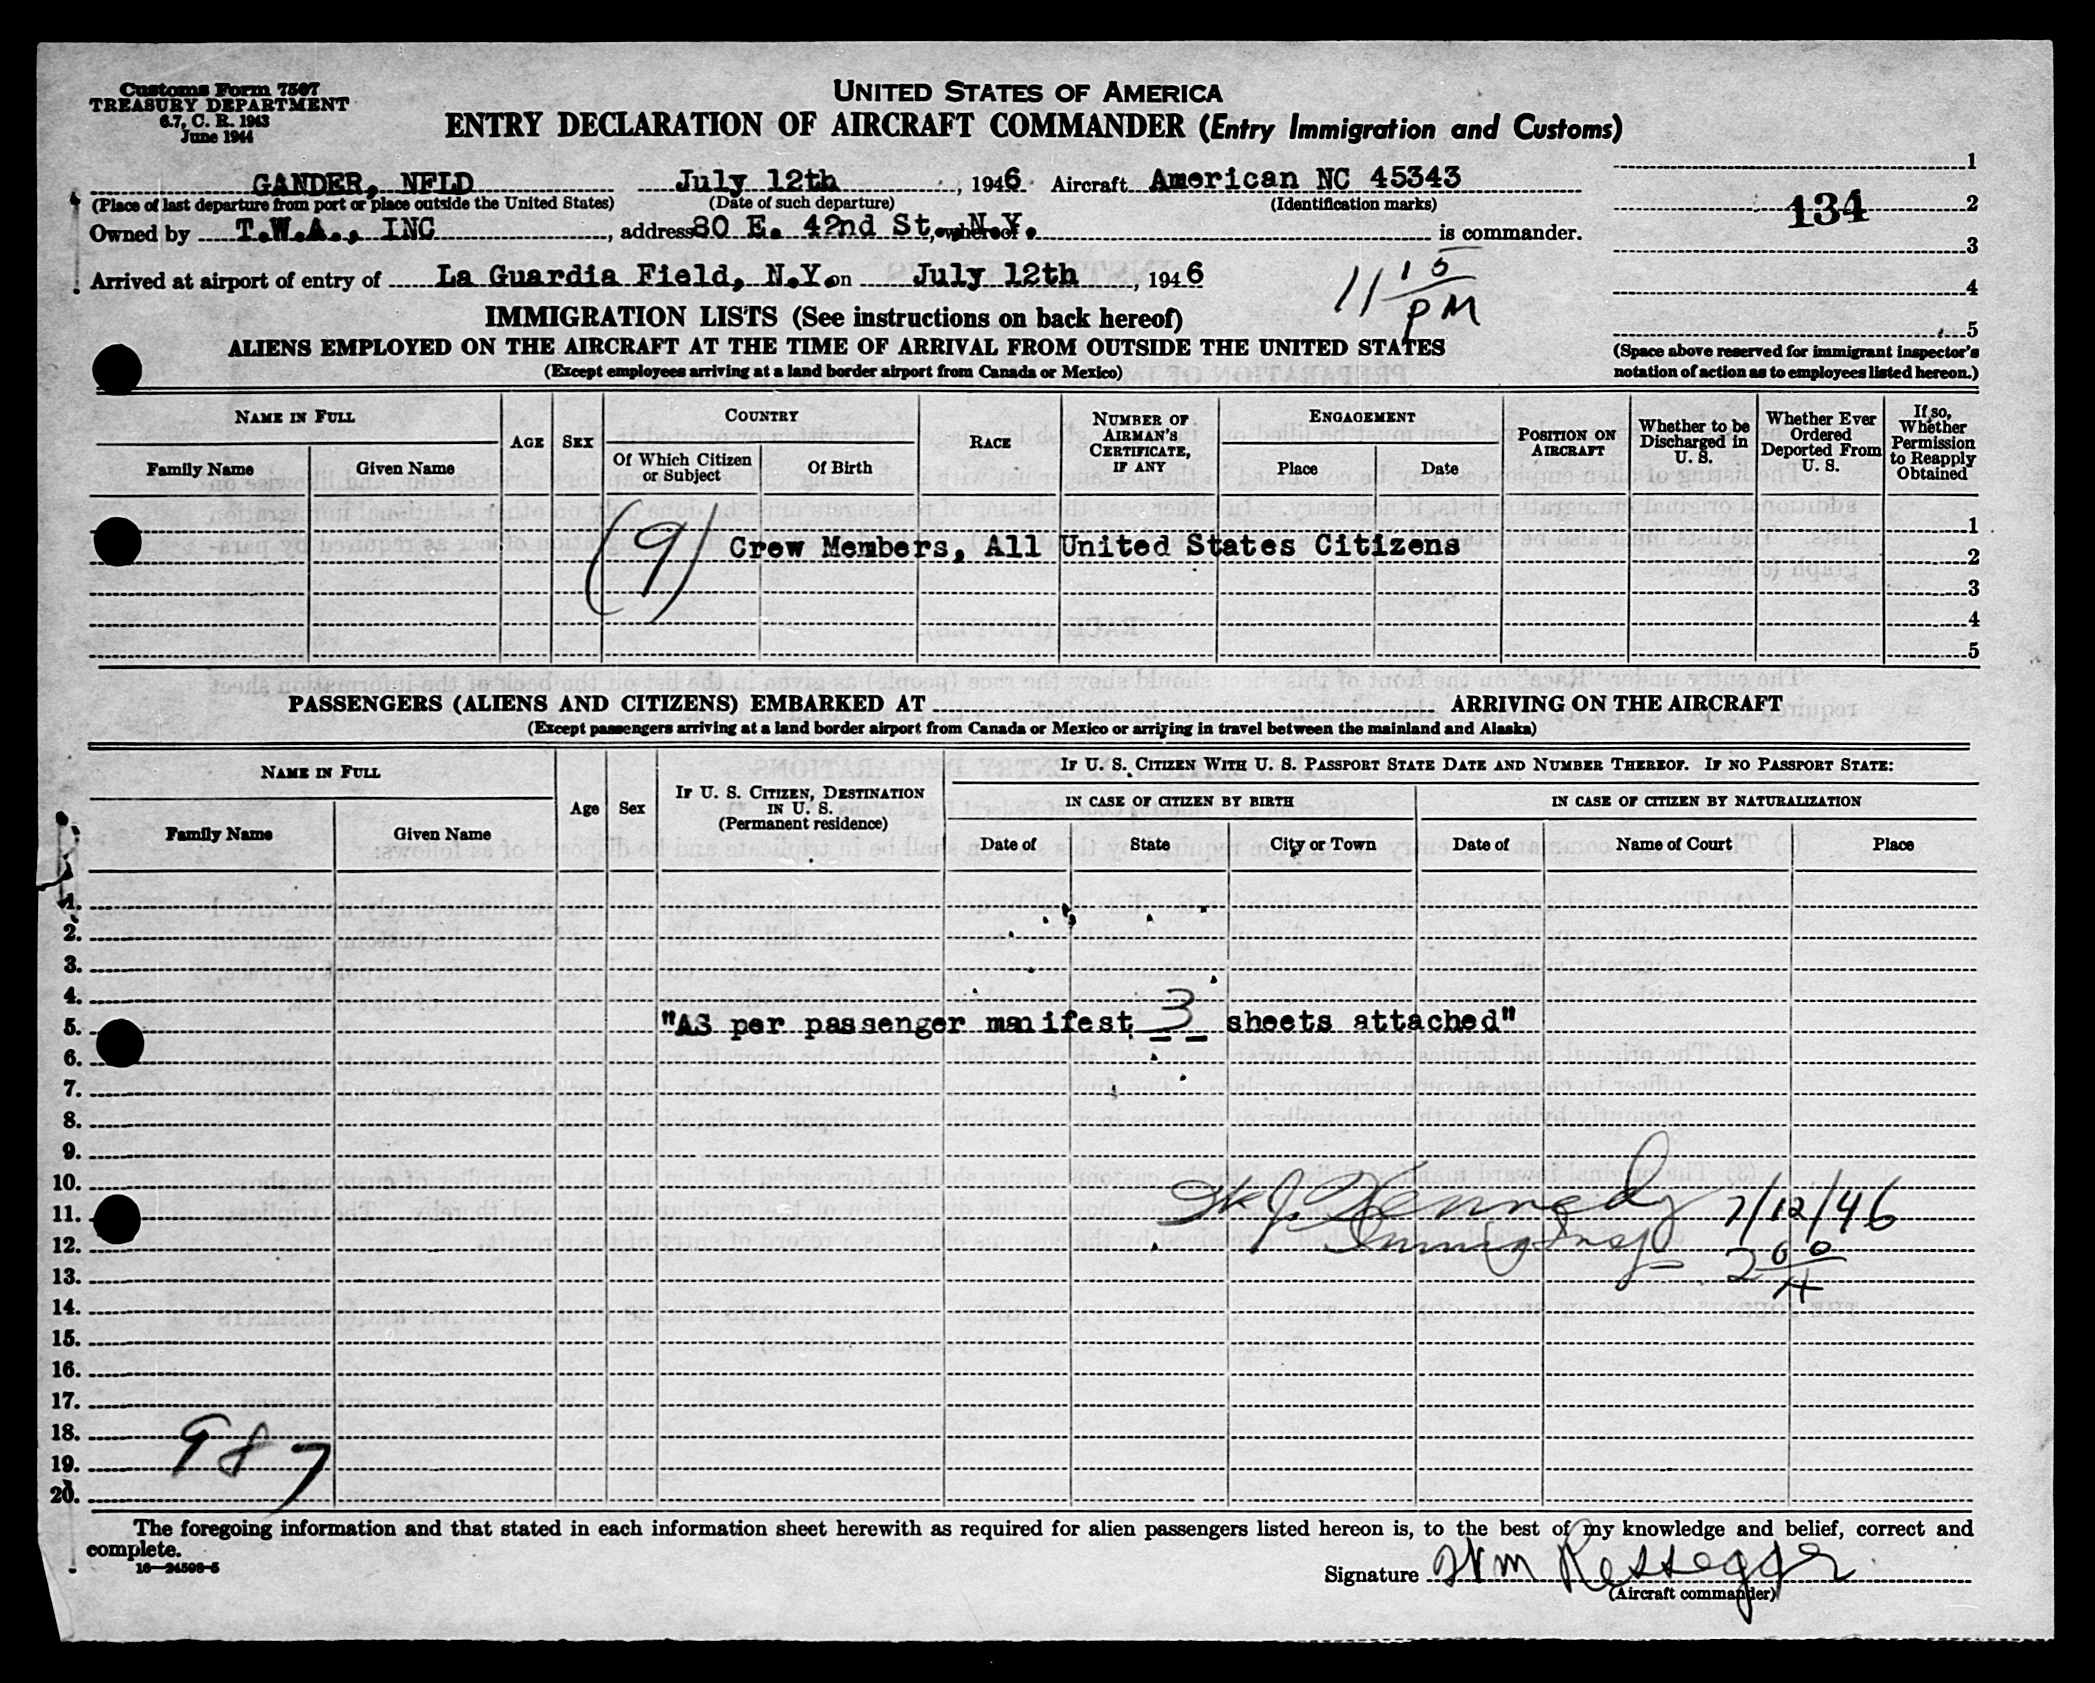 Customs Form 7507
TREASURY DEPARTMENT
6.7, C. R. 1943
June 1944
UNITED STATES OF AMERICA
ENTRY DECLARATION OF AIRCRAFT COMMANDER (Entry Immigration and Customs)
GANDER, NFLD July 12th, 1946 Aircraft American NC 45343
(Place of last departure from port or place outside the United States) (Date of such departure) (Identification marks)
Owned by T.W.A., INC, address 80 E. 42nd St., N.Y. whereof is commander.
Arrived at airport of entry of La Guardia Field, N.Y. on July 12th, 1946
11 15 PM
1
134 2
3
4
5
(Space above reserved for immigrant inspector's
notation of action as to employees listed hereon.)
IMMIGRATION LISTS (See instructions on back hereof)
ALIENS EMPLOYED ON THE AIRCRAFT AT THE TIME OF ARRIVAL FROM OUTSIDE THE UNITED STATES
(Except employees arriving at a land border airport from Canada or Mexico)
NAME IN FULL
Family Name Given Name
AGE SEX
COUNTRY
Of Which Citizen or Subject Of Birth
RACE
NUMBER OF AIRMAN'S CERTIFICATE, IF ANY
ENGAGEMENT
Place Date
POSITION ON AIRCRAFT
Whether to be Discharged in U. S.
Whether Ever Ordered Deported From U. S.
If so, Whether Permission to Reapply Obtained
1
(9) Crew Members, All United States Citizens
2
3
4
5
PASSENGERS (ALIENS AND CITIZENS) EMBARKED AT ARRIVING ON THE AIRCRAFT
(Except passengers arriving at a land border airport from Canada or Mexico or arriving in travel between the mainland and Alaska)
NAME IN FULL
Family Name Given Name
Age Sex
IF U. S. CITIZEN, DESTINATION IN U. S.
(Permanent residence)
IF U. S. CITIZEN WITH U. S. PASSPORT STATE DATE AND NUMBER THEREOF. IF NO PASSPORT STATE:
IN CASE OF CITIZEN BY BIRTH IN CASE OF CITIZEN BY NATURALIZATION
Date of State City or Town Date of Name of Court Place
1.
2.
3.
4.
5. "AS per passenger manifest 3 sheets attached"
6.
7.
8.
9.
10.
11. Kennedy 7/12/46
12. Immig Insp
13. 2 00 A
14.
15.
16.
17.
18.
19. 987
20.
The foregoing information and that stated in each information sheet herewith as required for alien passengers listed hereon is, to the best of my knowledge and belief, correct and
complete.
16—24598-5
Signature Wm
(Aircraft commander)